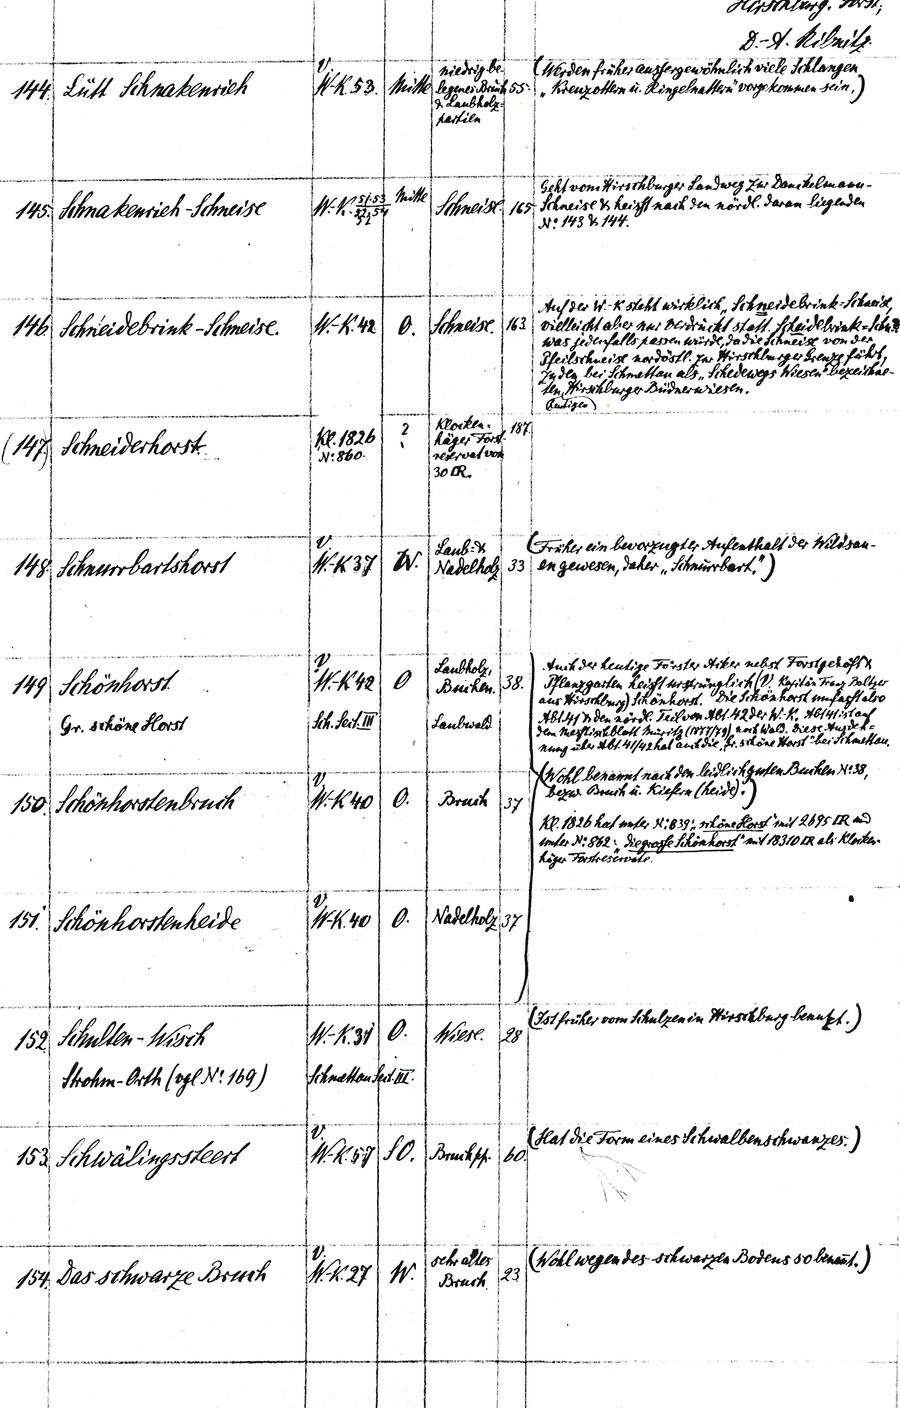 Hirschburg. Forst,
D.-A. Ribnitz.
144. Lütt Schnakenrich
V. W.-K. 53.
Mitte
niedrig be-
legener Bruch
& Laubholz-
partien
55.
(Werden früher aussergewöhnlich viele Schlangen
„Kreuzottern u. Ringelnattern" vorgekommen sein.)
145. Schnakenrich-Schneise
W.-K. 51.53
52.54
Mitte
Schneise.
165
Geht vom Hirschburger Landweg zur Danckelmann-
Schneise & heisst nach den nördl. daran liegenden
No. 143 & 144.
146. Schneidebrink-Schneise.
W.-K. 42
O.
Schneise.
163.
Auf der W.-K steht wirklich „Schneidebrink-Schneise,
vielleicht aber nur verdruckt statt Scheidebrink-Schn.
was jedenfalls passen würde, da die Schneise von der
Pfeilschneise nordöstl. zur Hirschburger Grenze führt,
zu den bei Schmettau als „Schedewegs Wiesen" bezeichne-
ten Hirschburger Büdnerwiesen.
(heutigen)
(147) Schneiderhorst.
Kl. 1826
No. 860.
?
Klocken-
häger Forst-
reservat von
30 □R.
187.
148. Schnurrbartshorst
V. W.-K. 37
W.
Laub- &
Nadelholz
33
(Früher ein bevorzugter Aufenthalt der Wildsau-
en gewesen, daher „Schnurrbart.")
149 Schönhorst.
V. W.-K. 42
O
Laubholz,
Buchen.
38.
Gr. schöne Horst
Sch. Sect. III
Laubwald
Auch der heutige Förster Acker nebst Forstgehöft &
Pflanzgarten heisst ursprünglich (V. Kapitän Franz Baltzer
aus Hirschburg) Schönhorst. Die Schönhorst umfasst also
Abt. 41 & den nördl. Teil von Abt. 42 der W.-K. Abt 41 ist auf
dem Messtischblatt Müritz (1877/79) noch Wald. Diese Ausdeh-
nung über Abt. 41/42 hat auch die „Gr. schöne Horst" bei Schmettau.
150. Schönhorstenbruch
V. W.-K. 40
O.
Bruch
37
(Wohl benannt nach den leidlich guten Buchen No. 38,
bezw. Bruch u. Kiefern (heide).)
Kl. 1826 hat unter No. 839: „schöne Horst" mit 2695 □R und
unter No. 862: „die grosse Schönhorst" mit 18310 □R als Klocken-
häger Forstreservate.
151. Schönhorstenheide
V. W.-K. 40
O.
Nadelholz
37
152. Schulten-Wisch
W.-K. 31
O.
Wiese.
28
(Ist früher vom Schulzen in Hirschburg benutzt.)
Strohm-Orth (vgl No. 169)
Schmettau Sect. III.
153. Schwälingssteert
V. W.-K. 57
SO.
Bruch pp.
60.
(Hat die Form eines Schwalbenschwanzes.)
154. Das schwarze Bruch
V. W.-K. 27
W.
sehr altes
Bruch
23
(Wohl wegen des schwarzen Bodens so benannt.)